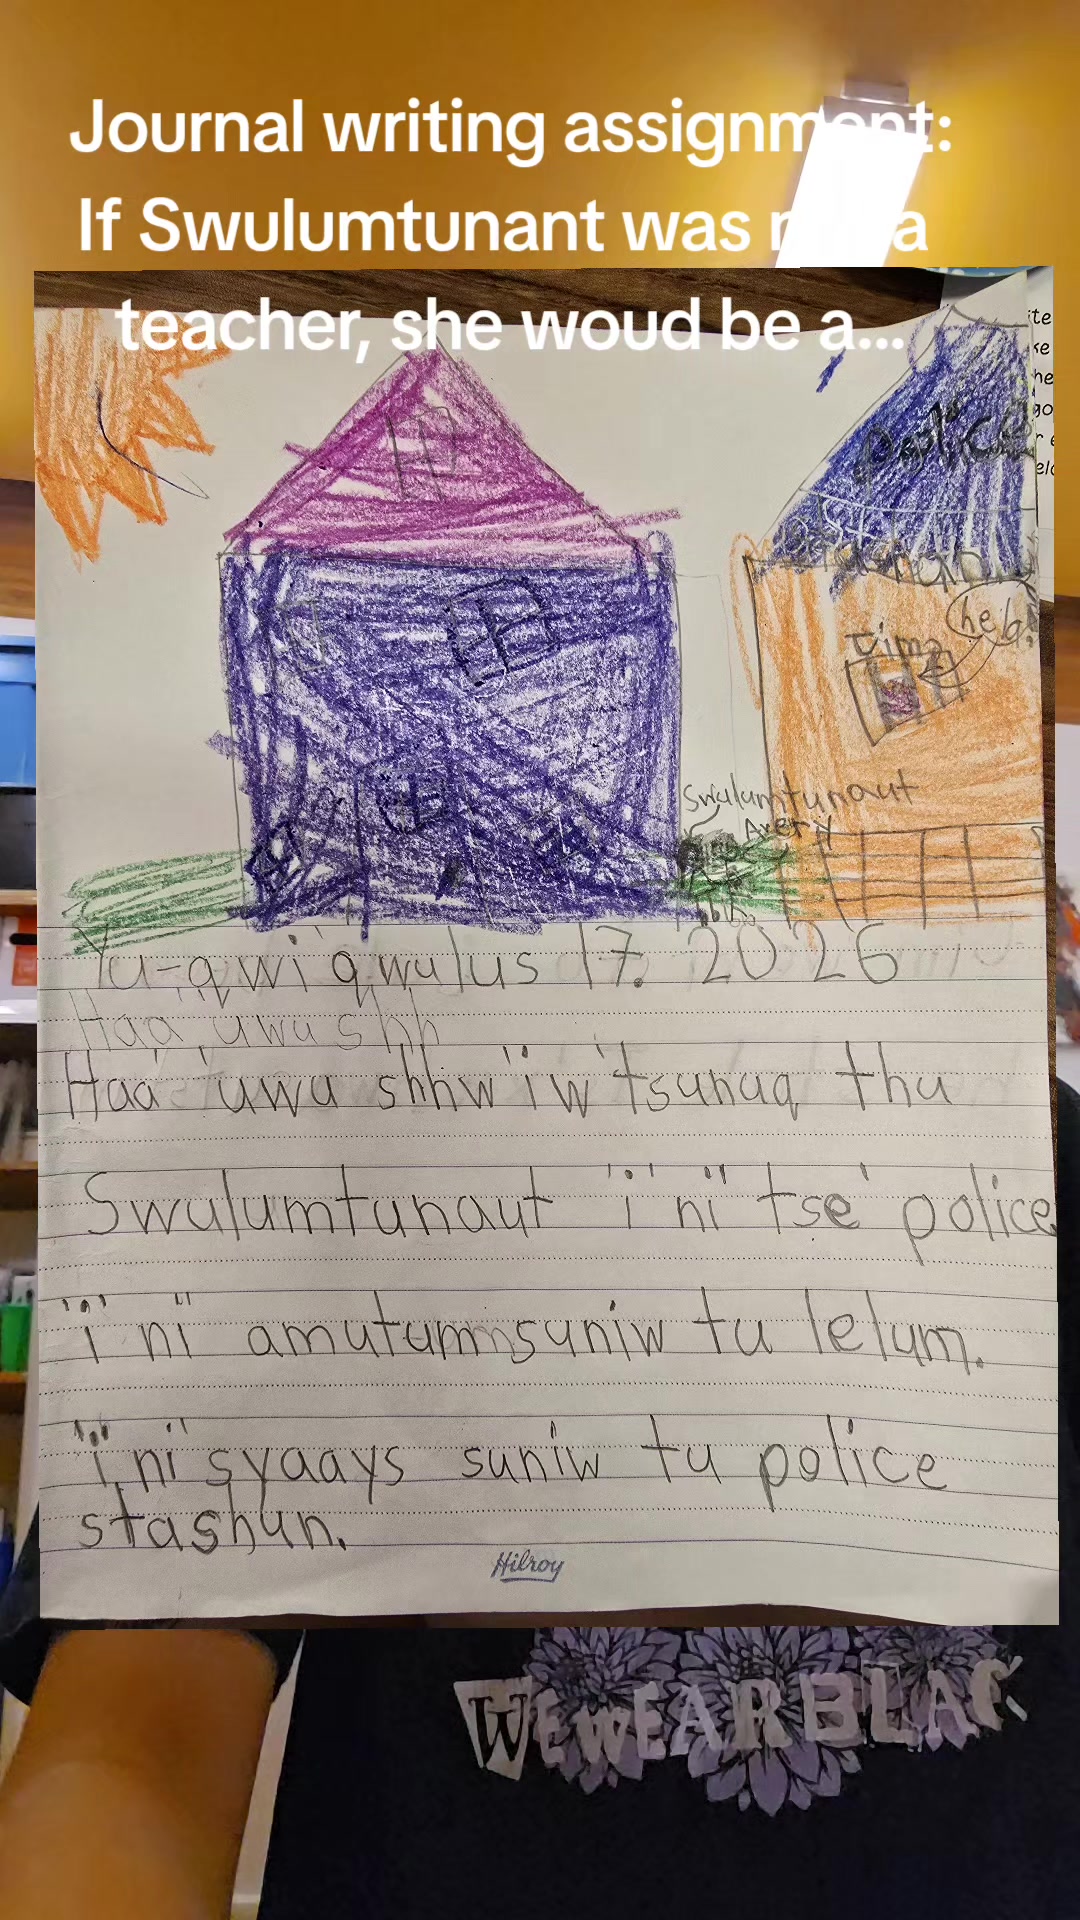 Journal writing assignment:
If Swulumtunant was a
teacher, she woud be a...
police
help!
Swulumtunaut
Avery
Yu-qwi'qwulus 17. 2026
Haa 'uwu shh
Haa' 'uwu shhw'i'w'tsunuq thu
Swulumtunaut 'i' ni' tse' police
'i' ni' amutumsuniw tu lelum.
'i' ni' syaays suniw tu police
stashun.
Hilroy
WE WEAR BLAC